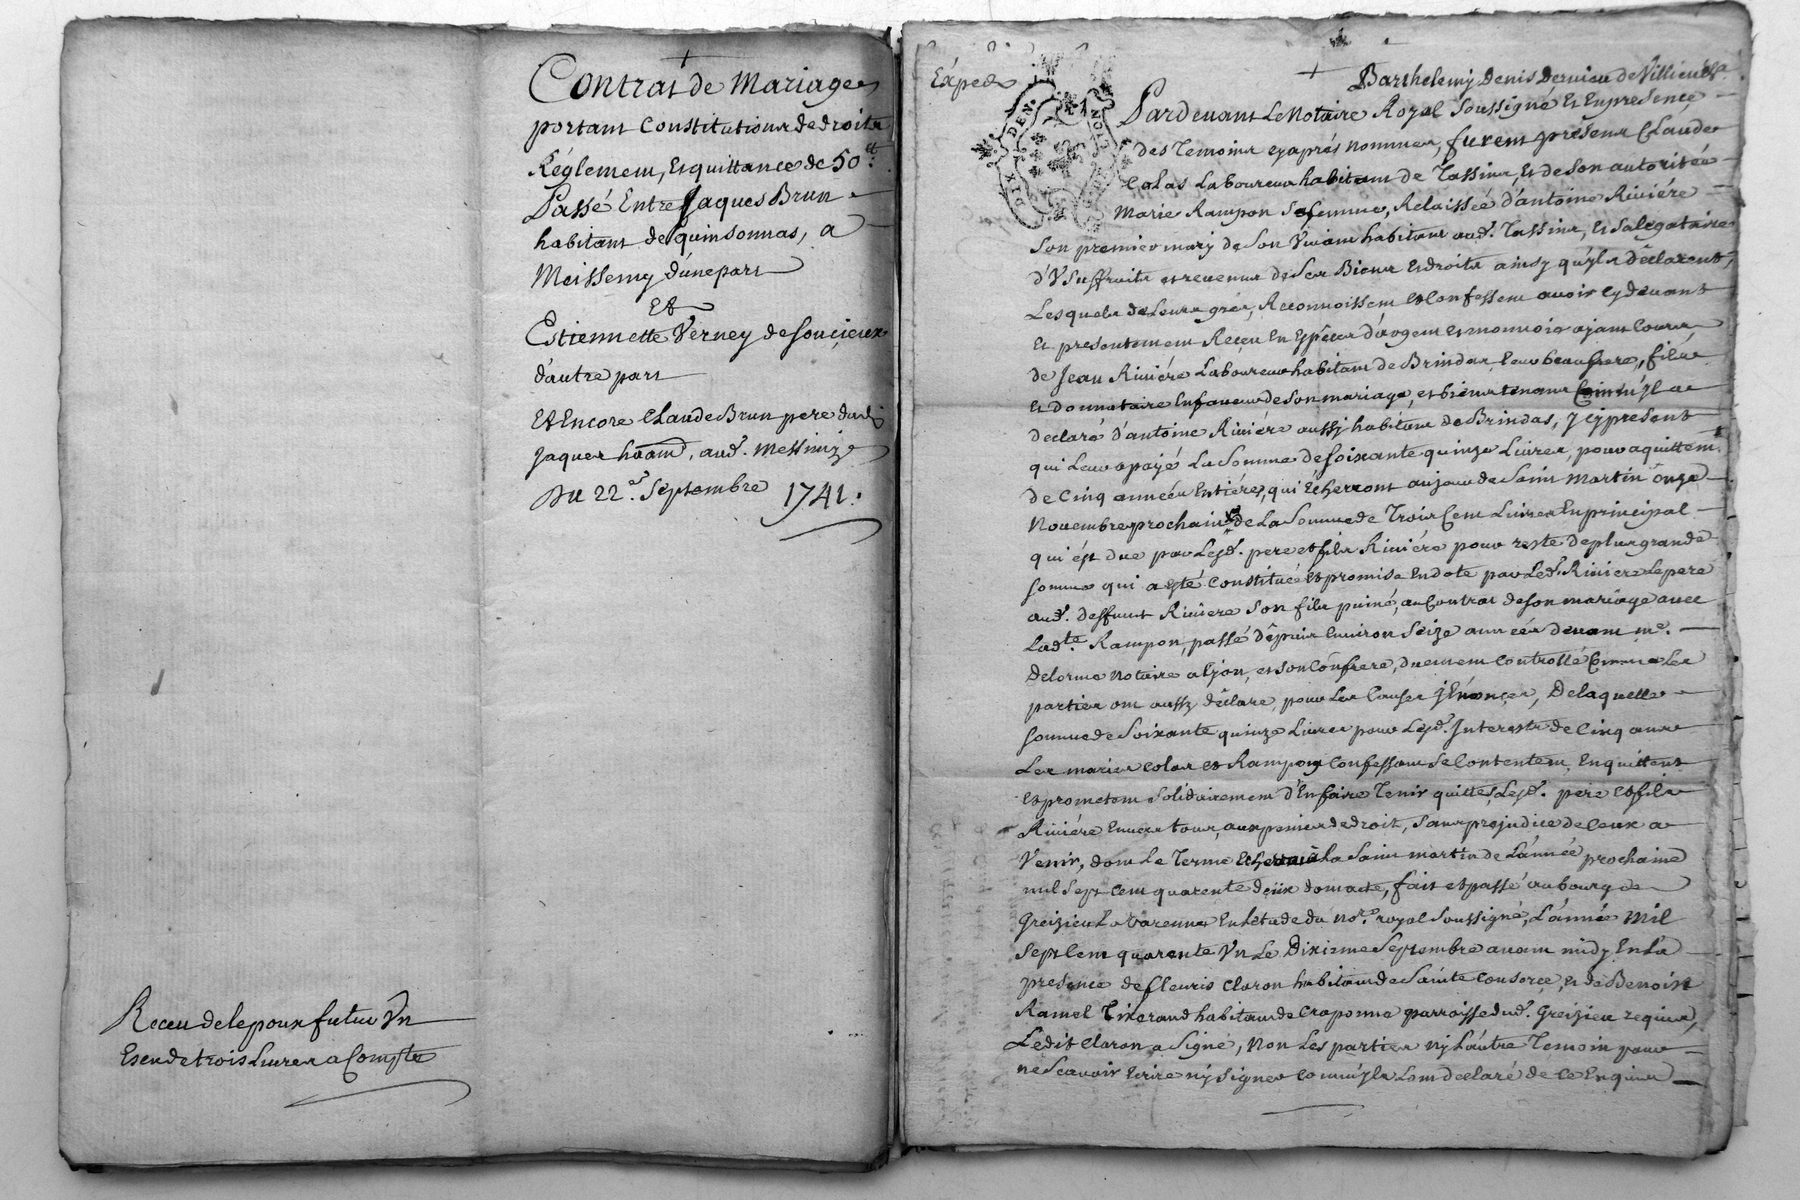 Contrat de Mariage
portant Constitutions de droits
Réglement, et quittance de 50 tt.
Passé Entre Jaques Brun
habitant de quinsonnas, a
Meissemy d'une part
Et
Estiennette Verney de souçieux
d'autre part
Et Encore Claude Brun pere dudi
Jaques hãnt, aud. Messimiz
Du 22e. Septembre 1741.
Receu de lepoux futur Vn
Escu de trois Livres a Compte
Expedié
DIX DEN.
LYON
Barthelemy Denis Dervieu de Villieu
Pardevant Le Notaire Royal Soussigné Et En presence
des Temoins cy aprés nommez, furent presens Claude
Colas Laboureur habitant de Tassins, Et de Son autorité
Marie Rampon Sa femme, Relaissée d'antoine Riviére
Son premier mary de Son Vivant habitant aud. Tassins, et Sa legataire
d'Vsuffruits et revenus de Ses Biens Et droits ainsy qu'yls déclarent,
Lesquels de Leurs grés, Reconnoissent et Confessent avoir cy devant
Et presentement Reçu En Espêces d'argent et monnoie ajant Cours
de Jean Riviére Laboureur habitant de Brindas, Leur beaufrere, fils
Et donnataire En faveur de Son mariage, et biens tenans Comm'yl a
declaré d'antoine Riviére aussy habitant de Brindas, J cy present
qui Leur a payé La Somme de Soixante quinze Livres, pour aquittem.t
de Cinq années Entiéres, qui Echerront au jour de Saint Martin ônze
Novembre prochain de La Somme de Trois Cent Livres En principal
qui ést due par Lesd. pere et fils Riviére pour reste de plus grande
Somme qui a esté Constituée et promise En dote par Led. Riviere Le pere
aud. deffunt Riviere Son fils puiné, au Contrat de Son mariage avec
Lad.te Rampon, passé dêpuis Environ Seize années devant me.
Delorme Notaire a Lyon, et Son Cônfrere, duement Controllé Comme Les
parties ont aussy déclare, pour Les Causes y Enônçées, De laquelle
Somme de Soixante quinze Livres pour Lesd. Interests de Cinq ans
Les maries Colas et Rampon Confessant Se Contentent, En quittent
Et prometent Solidairement d'En faire Tenir quittes Lesd. pere et fils
Riviére Envers tous, aux peines de droit, Sans prejudice de Ceux a
Venir, dont Le Terme Echerra a la Saint martin de L'année prochaine
mil Sept Cent quarente deux dont acte, fait et passé au bourg de
Greizieu La Varenne En Letude du No.re royal Soussigné, L'année Mil
Sept Cent quarente Vn Le Dixieme Septembre avant midy En La
presence de fleuris Claron habitant de Sainte Consorce, et de Benoist
Ramel Tixerand habitant de Craponne parroisse dud. Greizieu requis,
Ledit Claron a Signé, Non Les parties ny L'autre Temoin pour
ne Scavoir Ecrire ny Signer comm'yls L'ont declaré de ce Enquis